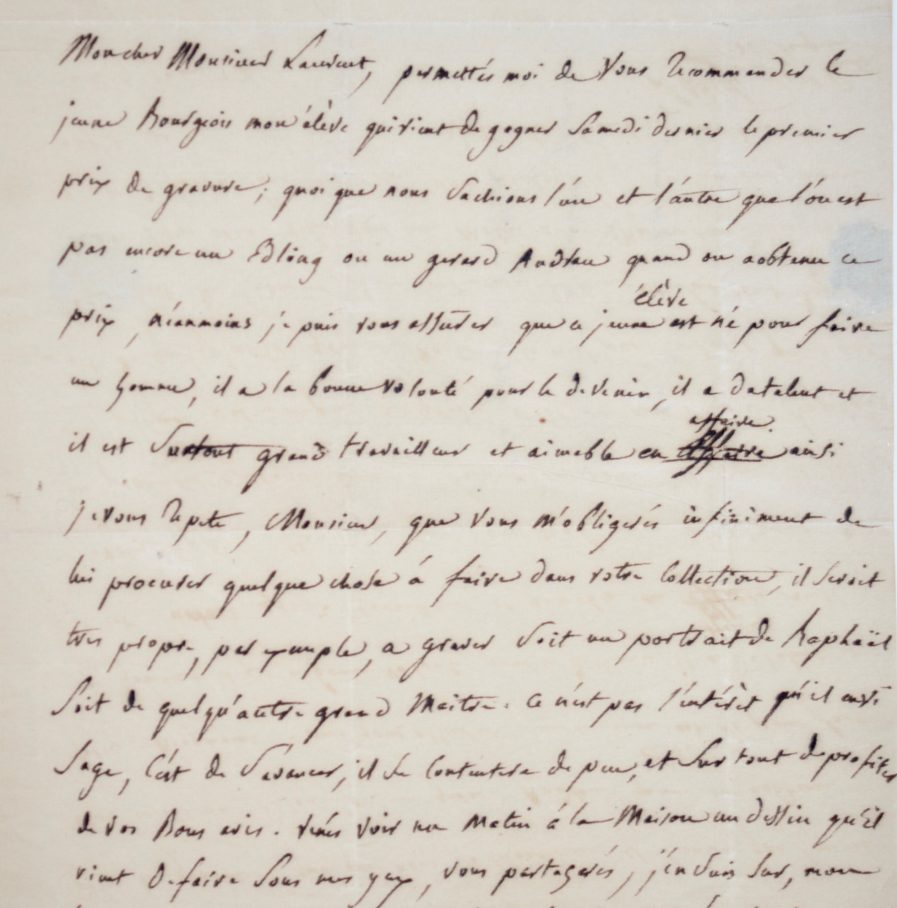 Mon cher Monsieur Laurent, permettés moi de Vous recommander le
jeune Bourgeois mon élève qui vient de gagner Samedi dernier le premier
prix de gravure; quoi que nous Sachions l'un et l'autre que l'on est
pas encore un Edling ou un gerard Audran quand on a obtenu ce
prix, néanmoins je puis vous assurer que ce jeune élève est né pour faire
un homme, il a la bonne volonté pour le devenir, il a du talent et
il est Surtout grand travailleur et aimable en affaire affaire. ainsi
je vous repete, Monsieur, que Vous m'obligerés infiniment de
lui procurer quelque chose à faire dans votre Collection, il seroit
tres propre, par exemple, a graver Soit un portrait de Raphaël
Soit de quelqu'autre grand Maitre. Ce n'est pas l'intérêt qu'il envi
sage, C'est de S'avancer, il se Contentera de peu, et Sur tout de profiter
de vos Bons avis. venés voir un Matin à la Maison un dessin qu'il
vient de faire Sous mes yeux, vous partagerés, j'en Suis Sur, mon